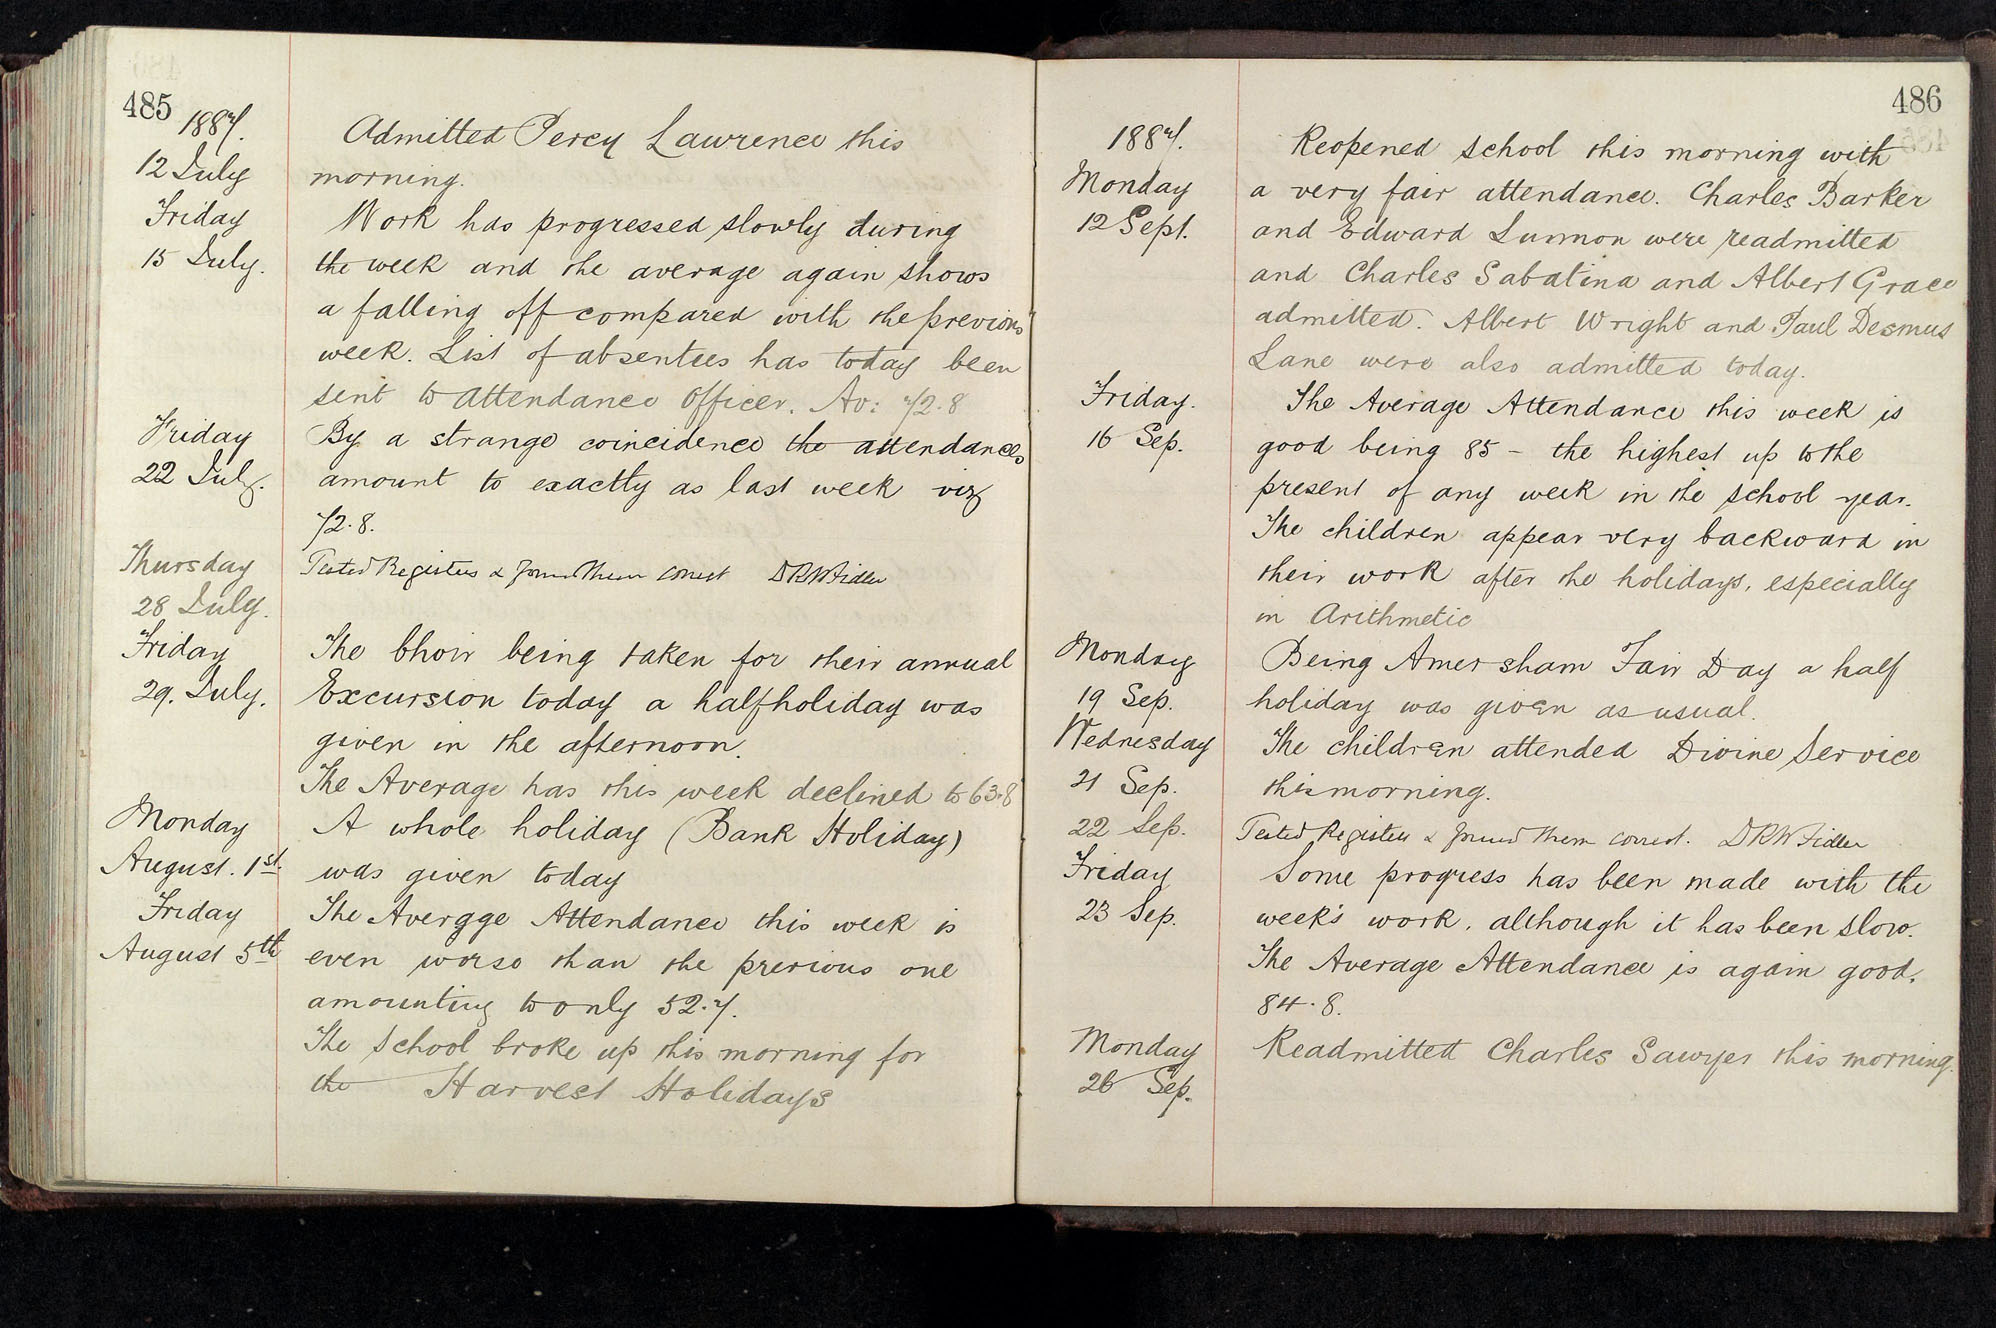 485
1887.
12 July
Admitted Percy Lawrence this
morning.
Friday
15 July.
Work has progressed slowly during
the week and the average again shows
a falling off compared with the previous
week. List of absentees has today been
sent to Attendance Officer. Av: 72.8
Friday
22 July.
By a strange coincidence the attendances
amount to exactly as last week viz
72.8.
Thursday
28 July.
Tested Registers & found them correct DRW Fidler
Friday
29. July.
The Choir being taken for their annual
Excursion today a half holiday was
given in the afternoon.
The Average has this week declined to 63.8
Monday
August. 1st.
A whole holiday (Bank Holiday)
was given today
Friday
August 5th
The Average Attendance this week is
even worse than the previous one
amounting to only 52.7.
The School broke up this morning for
the Harvest Holidays
486
1887.
Monday
12 Sept.
Reopened school this morning with
a very fair attendance. Charles Barker
and Edward Lunnon were readmitted
and Charles Sabatina and Albert Grace
admitted. Albert Wright and Paul Desmus
Lane were also admitted today.
Friday.
16 Sep.
The Average Attendance this week is
good being 85 - the highest up to the
present of any week in the school year.
The children appear very backward in
their work after the holidays, especially
in Arithmetic
Monday
19 Sep.
Being Amersham Fair Day a half
holiday was given as usual.
Wednesday
21 Sep.
The children attended Divine Service
this morning.
22 Sep.
Tested Registers & found them correct. DRW Fidler
Friday
23 Sep.
Some progress has been made with the
week's work, although it has been slow.
The Average Attendance is again good.
84.8.
Monday
26 Sep.
Readmitted Charles Sawyer this morning.